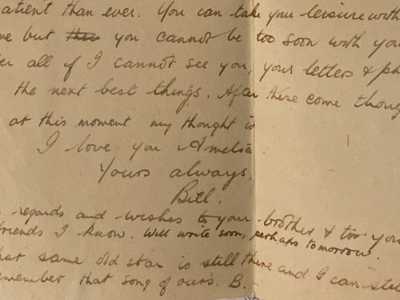 atient than ever. You can take your leisure worth
me but you cannot be too soon with you
er all if I cannot see you, your letters & ph
the next best things. After there come though
at this moment my thought is
I love you Amelia.
Yours always,
Bill.
regards and wishes to your brother & to you
friends I know. Will write soon, perhaps tomorrow.
hat same old star is still there and I can stil
emember that song of ours. B.